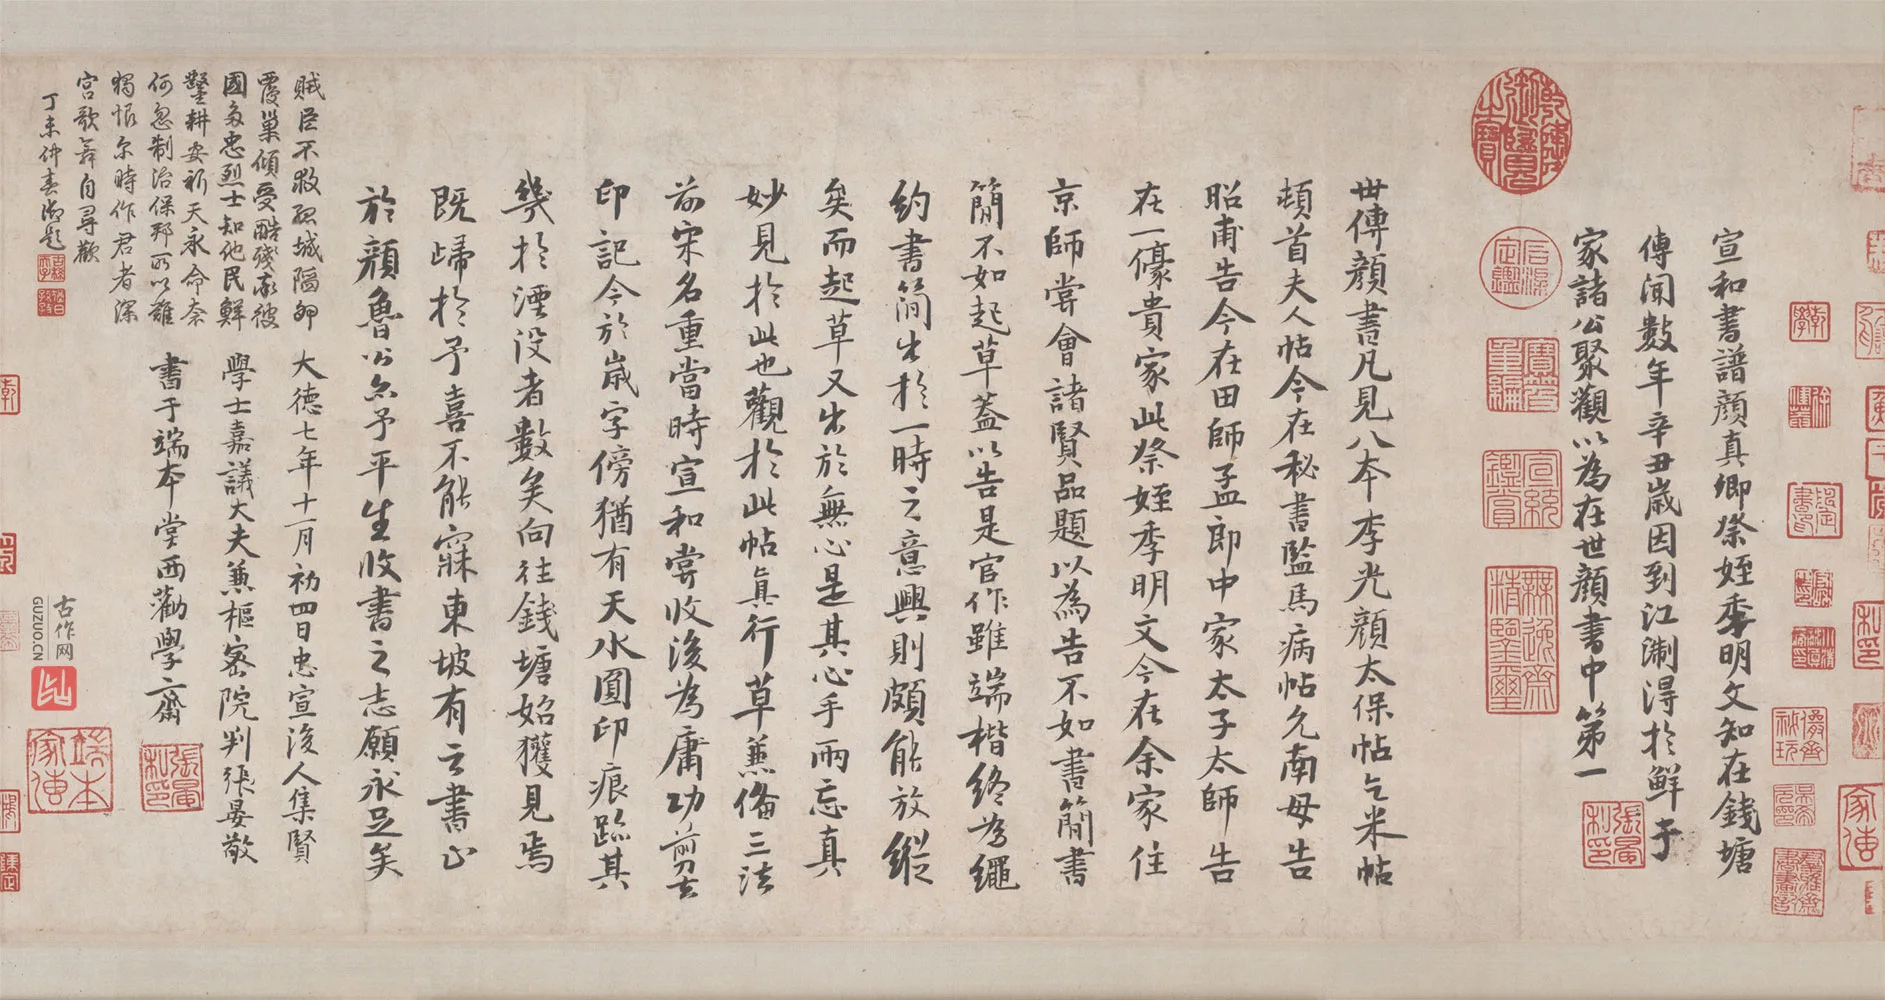 宣和書譜顏真卿祭姪季明文知在錢塘
傳聞數年辛丑歲因到江淛得於鮮于
家諸公聚觀以為在世顏書中第一
世傳顏書凡見八本李光顏太保帖乞米帖
頓首夫人帖今在秘書監馬病帖允南母告
昭甫告今在田師孟郎中家太子太師告
在一僚貴家此祭姪季明文今在余家住
京師嘗會諸賢品題以為告不如書簡書
簡不如起草蓋以告是官作雖端楷終為繩
約書簡出於一時之意興則頗能放縱
矣而起草又出於無心是其心手兩忘真
妙見於此也觀於此帖真行草兼備三法
前宋名重當時宣和嘗收後為庸功剪去
印記今於歲字傍猶有天水圓印痕跡其
幾於湮没者數矣向往錢塘始獲見焉
既歸於予喜不能寐東坡有云書止
於顏魯公亦予平生收書之志願永足矣
大德七年十一月初四日忠宣後人集賢
學士嘉議大夫兼樞密院判張晏敬
書于端本堂西勸學齋
賊臣不救孤城隔卵
覆巢傾受酷殘承彼
國多忠烈士知他民鮮
鑿耕安祈天永命奈
何忽制治保邦所以難
獨恨尔時作君者深
宮歌舞自尋歡
丁未仲春御題
古作网
GUZUO.CN